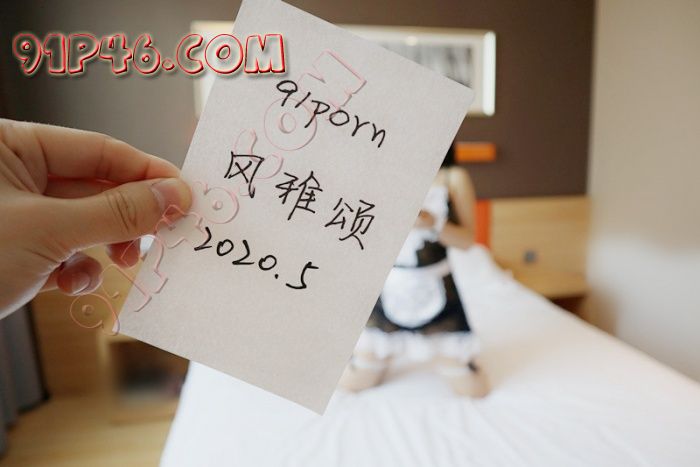 91P46.COM
91porn
风雅颂
2020.5
91P46.COM